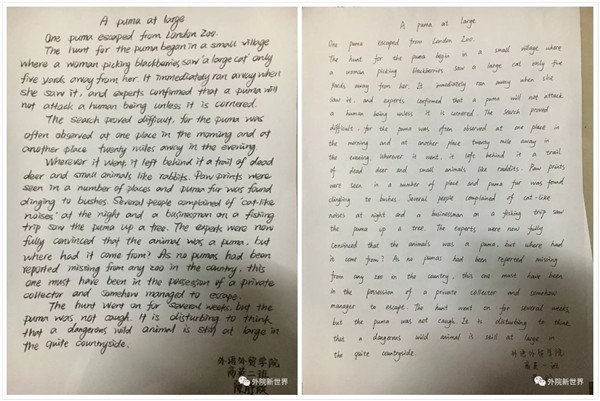 A puma at large
One puma escaped from London Zoo.
The hunt for the puma began in a small village
where a woman picking blackberries saw 'a large cat' only
five yards away from her. It immediately ran away when
she saw it, and experts confirmed that a puma will
not attack a human being unless it is cornered.
The search proved difficult, for the puma was
often observed at one place in the morning and at
another place twenty miles away in the evening.
Wherever it went, it left behind it a trail of dead
deer and small animals like rabbits. Paw prints were
seen in a number of places and puma fur was found
clinging to bushes. Several people complained of 'cat-like
noises' at the night and a businessman on a fishing
trip saw the puma up a tree. The experts were now
fully convinced that the animal was a puma, but
where had it come from? As no pumas had been
reported missing from any zoo in the country, this
one must have been in the possession of a private
collector and somehow managed to escape.
The hunt went on for several weeks, but the
puma was not caugh. It is disturbing to think
that a dangerous wild animal is still at large in
the quite countryside.
外语外贸学院
高英二班
外院新世界
A puma at large
One puma escaped from London Zoo.
The hunt for the puma begin in a small village where
a woman picking blackberries saw a large cat only five
yards away from her. It immediately ran away when she
saw it, and experts confirmed that a puma will not attack
a human being unless it is cornered. The search proved
difficult, for the puma was often observed at one place in
the morning and at another place twenty mile away in
the evening. Wherever is went, it left behind it a trail
of dead deer and small animals like raddits. Paw prints
were seen in a number of place and puma fur was found
clinging to bushes. Several people complained of cat-like
notes at night and a businessman on a fishing trip saw
the puma up a tree. The experts were now fully
convinced that the animals was a puma, but where had
it come from? As no pumas had been reported missing
from any zoo in the country, this one must have been
in the possession of a private collector and somehow
manager to escape. The hunt went on for several weeks,
but the puma was not caugh. It is disturbing to think
that a dangerous wild animal is still at large in
the quite countryside.
外语外贸学院
高英一班
外院新世界